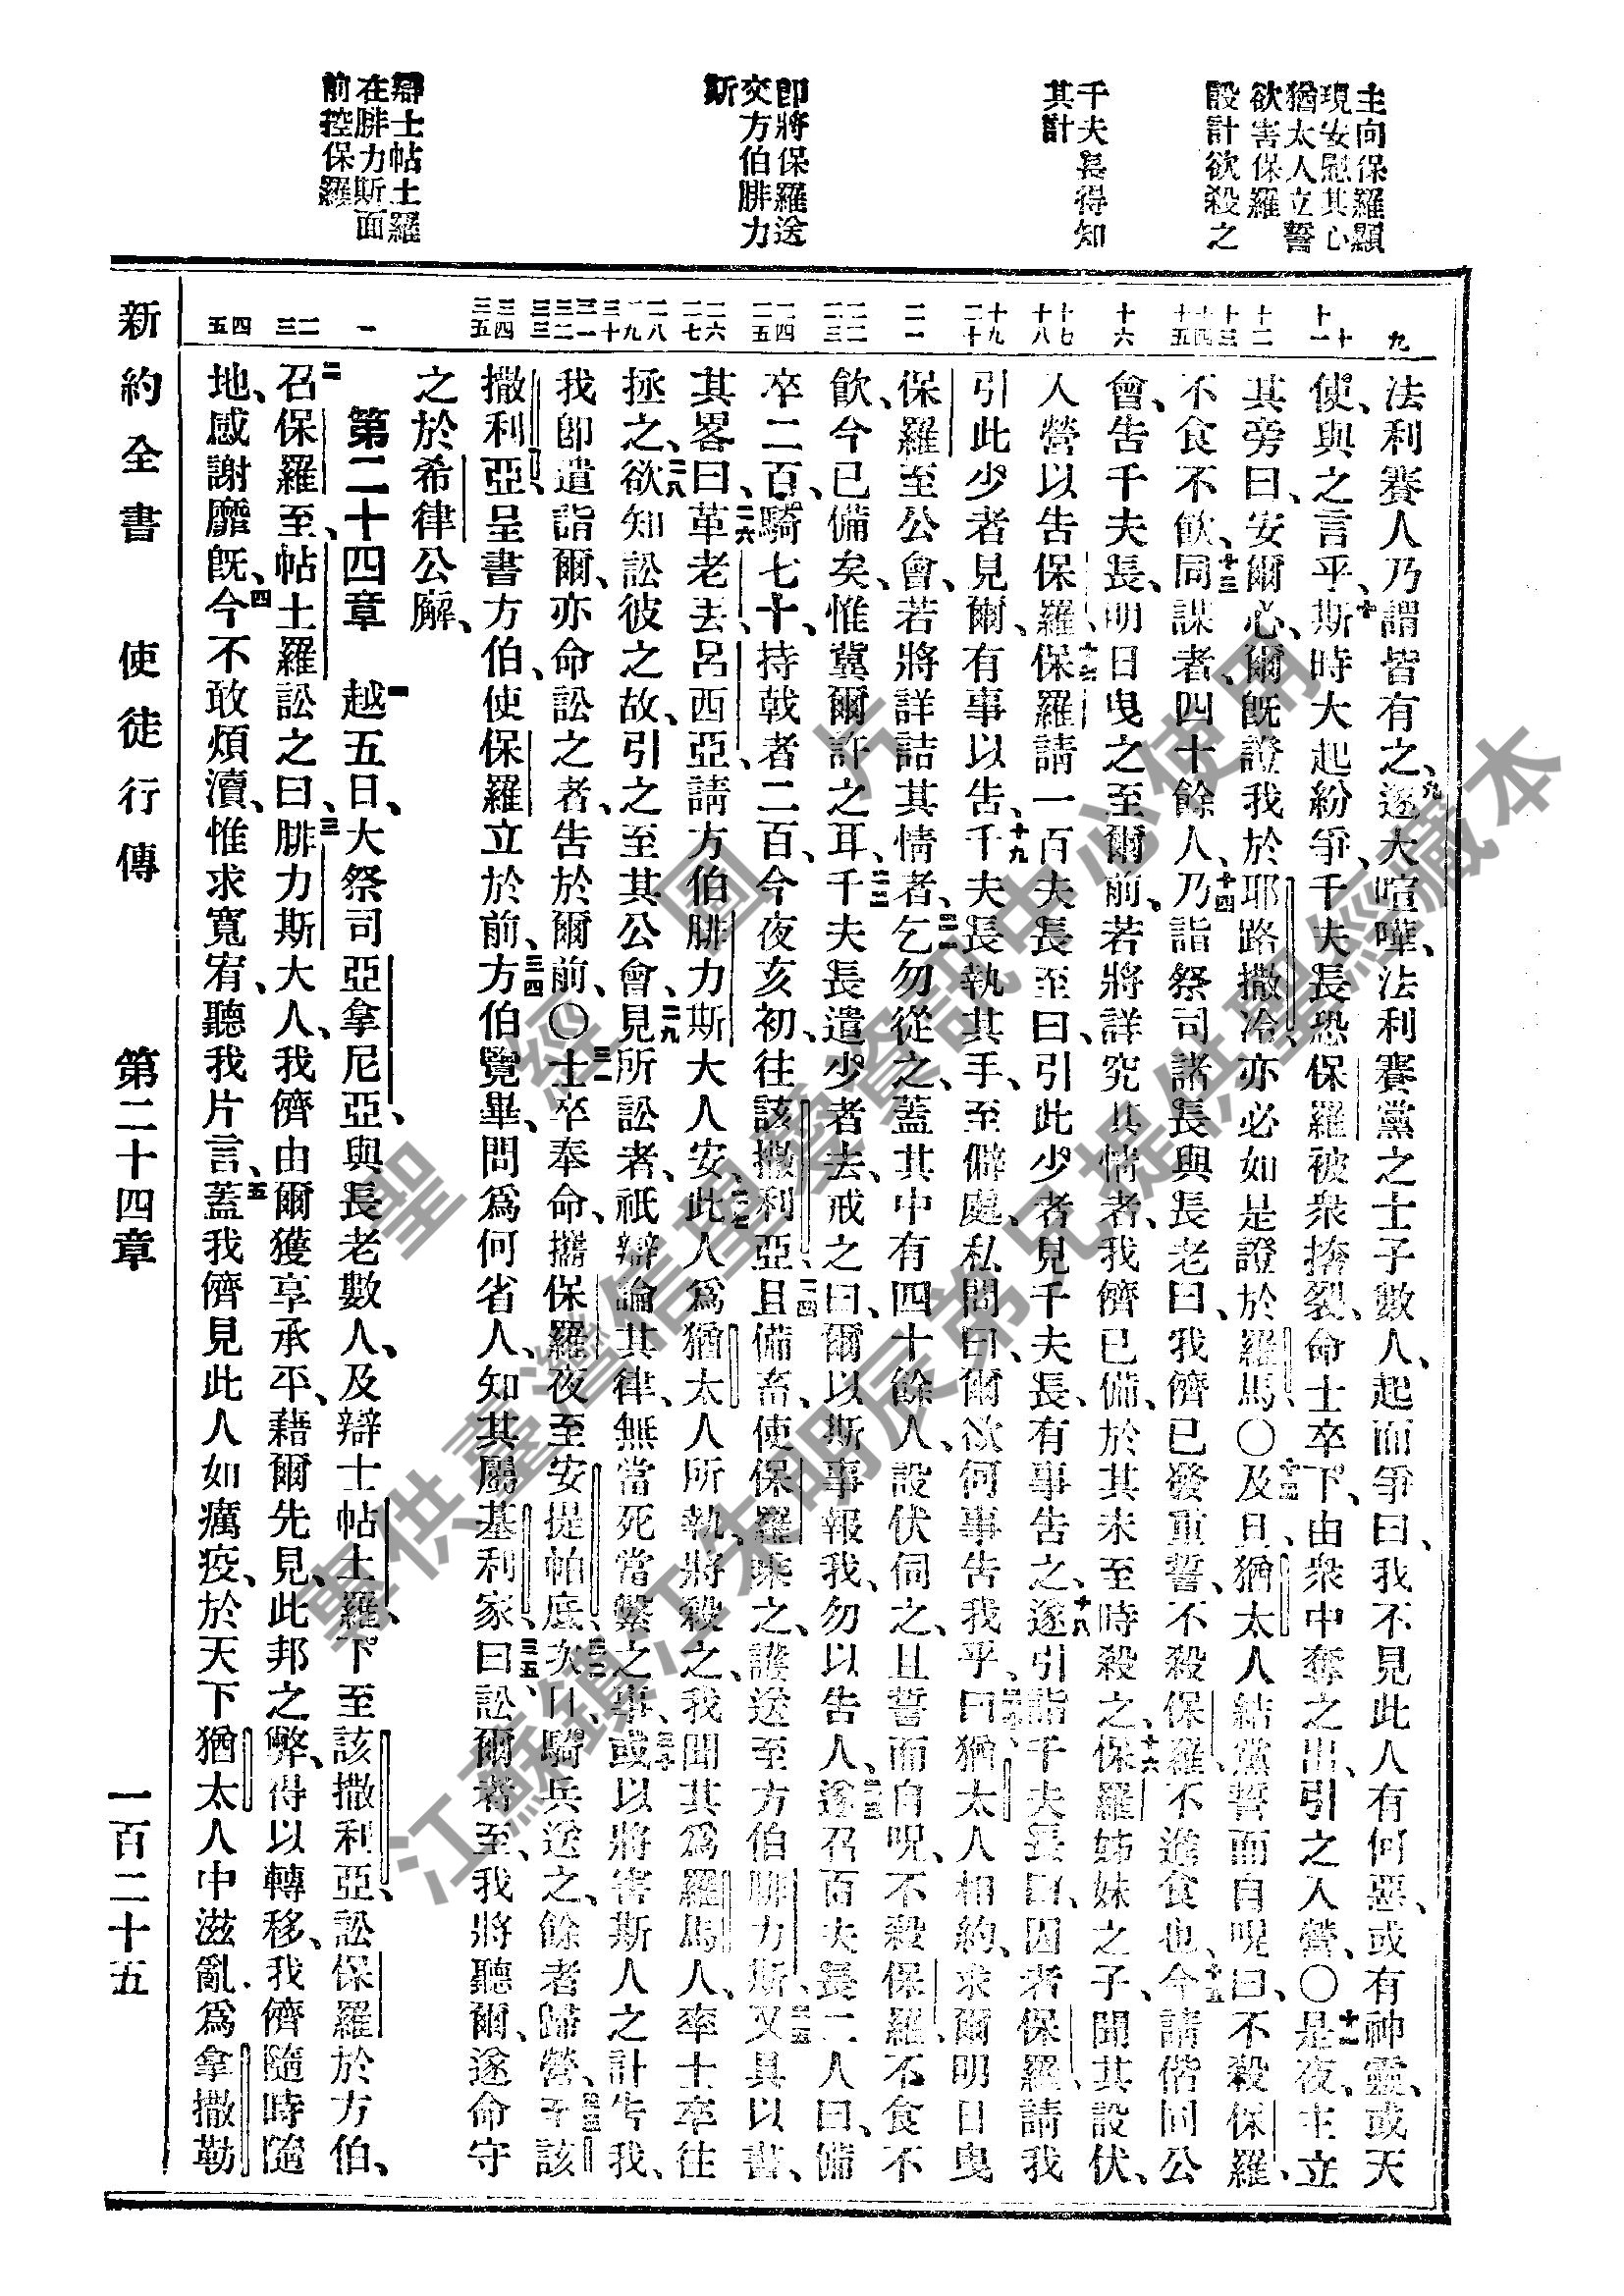 主向保羅顯
現安慰其心
猶太人立誓
欲害保羅
設計欲殺之
千夫長得知
其計
即將保羅送
交方伯腓力
斯
辯士帖土羅
在腓力斯面
前控保羅
九
十
十一
十二
十三
十四
十五
十六
十七
十八
十九
二十
二一
二二
二三
二四
二五
二六
二七
二八
二九
三十
三一
三二
三三
三四
三五
一
二
三
四
五
法利賽人乃謂皆有之、九遂大喧嘩、法利賽黨之士子數人、起而爭曰、我不見此人有何惡、或有神靈、或天
使、與之言乎、十斯時大起紛爭、千夫長恐保羅被衆搸裂、命士卒下、由衆中奪之出、引之入營、〇十一是夜、主立
其旁曰、安爾心、爾旣證我於耶路撒冷、亦必如是證於羅馬〇十二及旦、猶太人結黨誓而自呪曰、不殺保羅、
不食不飮、十三同謀者、四十餘人、十四乃詣祭司諸長與長老曰、我儕已發重誓、不殺保羅、不進食也、十五今請偕同公
會、告千夫長、明日曳之至爾前、若將詳究其情者、我儕已備、於其未至時殺之、十六保羅姊妹之子、聞其設伏、
入營以告保羅、十七保羅請一百夫長至曰、引此少者見千夫長、有事告之、十八遂引詣千夫長曰、囚者保羅、請我
引此少者見爾、有事以告、十九千夫長執其手、至僻處、私問曰、爾欲何事告我乎、二十曰、猶太人相約、求爾明日曳
保羅至公會、若將詳詰其情者、二一乞勿從之、蓋其中有四十餘人、設伏伺之、且誓而自呪、不殺保羅、不食不
飮、今已備矣、惟冀爾許之耳、二二千夫長遣少者去、戒之曰、爾以斯事報我、勿以告人、二三遂召百夫長二人曰、備
卒二百、騎七十、持戟者二百、今夜亥初、往該撒利亞、二四且備畜、使保羅乘之、護送至方伯腓力斯、二五又具以書、
其畧曰、二六革老丟呂西亞、請方伯腓力斯大人安、二七此人爲猶太人所執、將殺之、我聞其爲羅馬人、率士卒往
拯之、二八欲知訟彼之故、引之至其公會、二九見所訟者、祇辯論其律、無當死當繫之事、三十或以將害斯人之計告我、
我卽遣詣爾、亦命訟之者、告於爾前、〇三一士卒奉命、攜保羅夜至安提帕底、三二次日、騎兵送之、餘者歸營、三三至該
撒利亞、呈書方伯、使保羅立於前、三四方伯覽畢、問爲何省人、知其屬基利家、三五曰、訟爾者至、我將聽爾、遂命守
之於希律公廨、
第二十四章 一越五日、大祭司亞拿尼亞、與長老數人、及辯士帖土羅、下至該撒利亞、訟保羅於方伯、
二召保羅至、帖土羅訟之曰、三腓力斯大人、我儕由爾獲享承平、藉爾先見、此邦之弊、得以轉移、我儕隨時隨
地、感謝靡旣、四今不敢煩瀆、惟求寬宥、聽我片言、五蓋我儕見此人如癘疫、於天下猶太人中滋亂、爲拿撒勒
新約全書 使徒行傳 第二十四章 一百二十五
聖經圖片
專供臺灣信望愛資訊中心使用
江蘇鎮江朱明辰弟兄提供聖經藏本